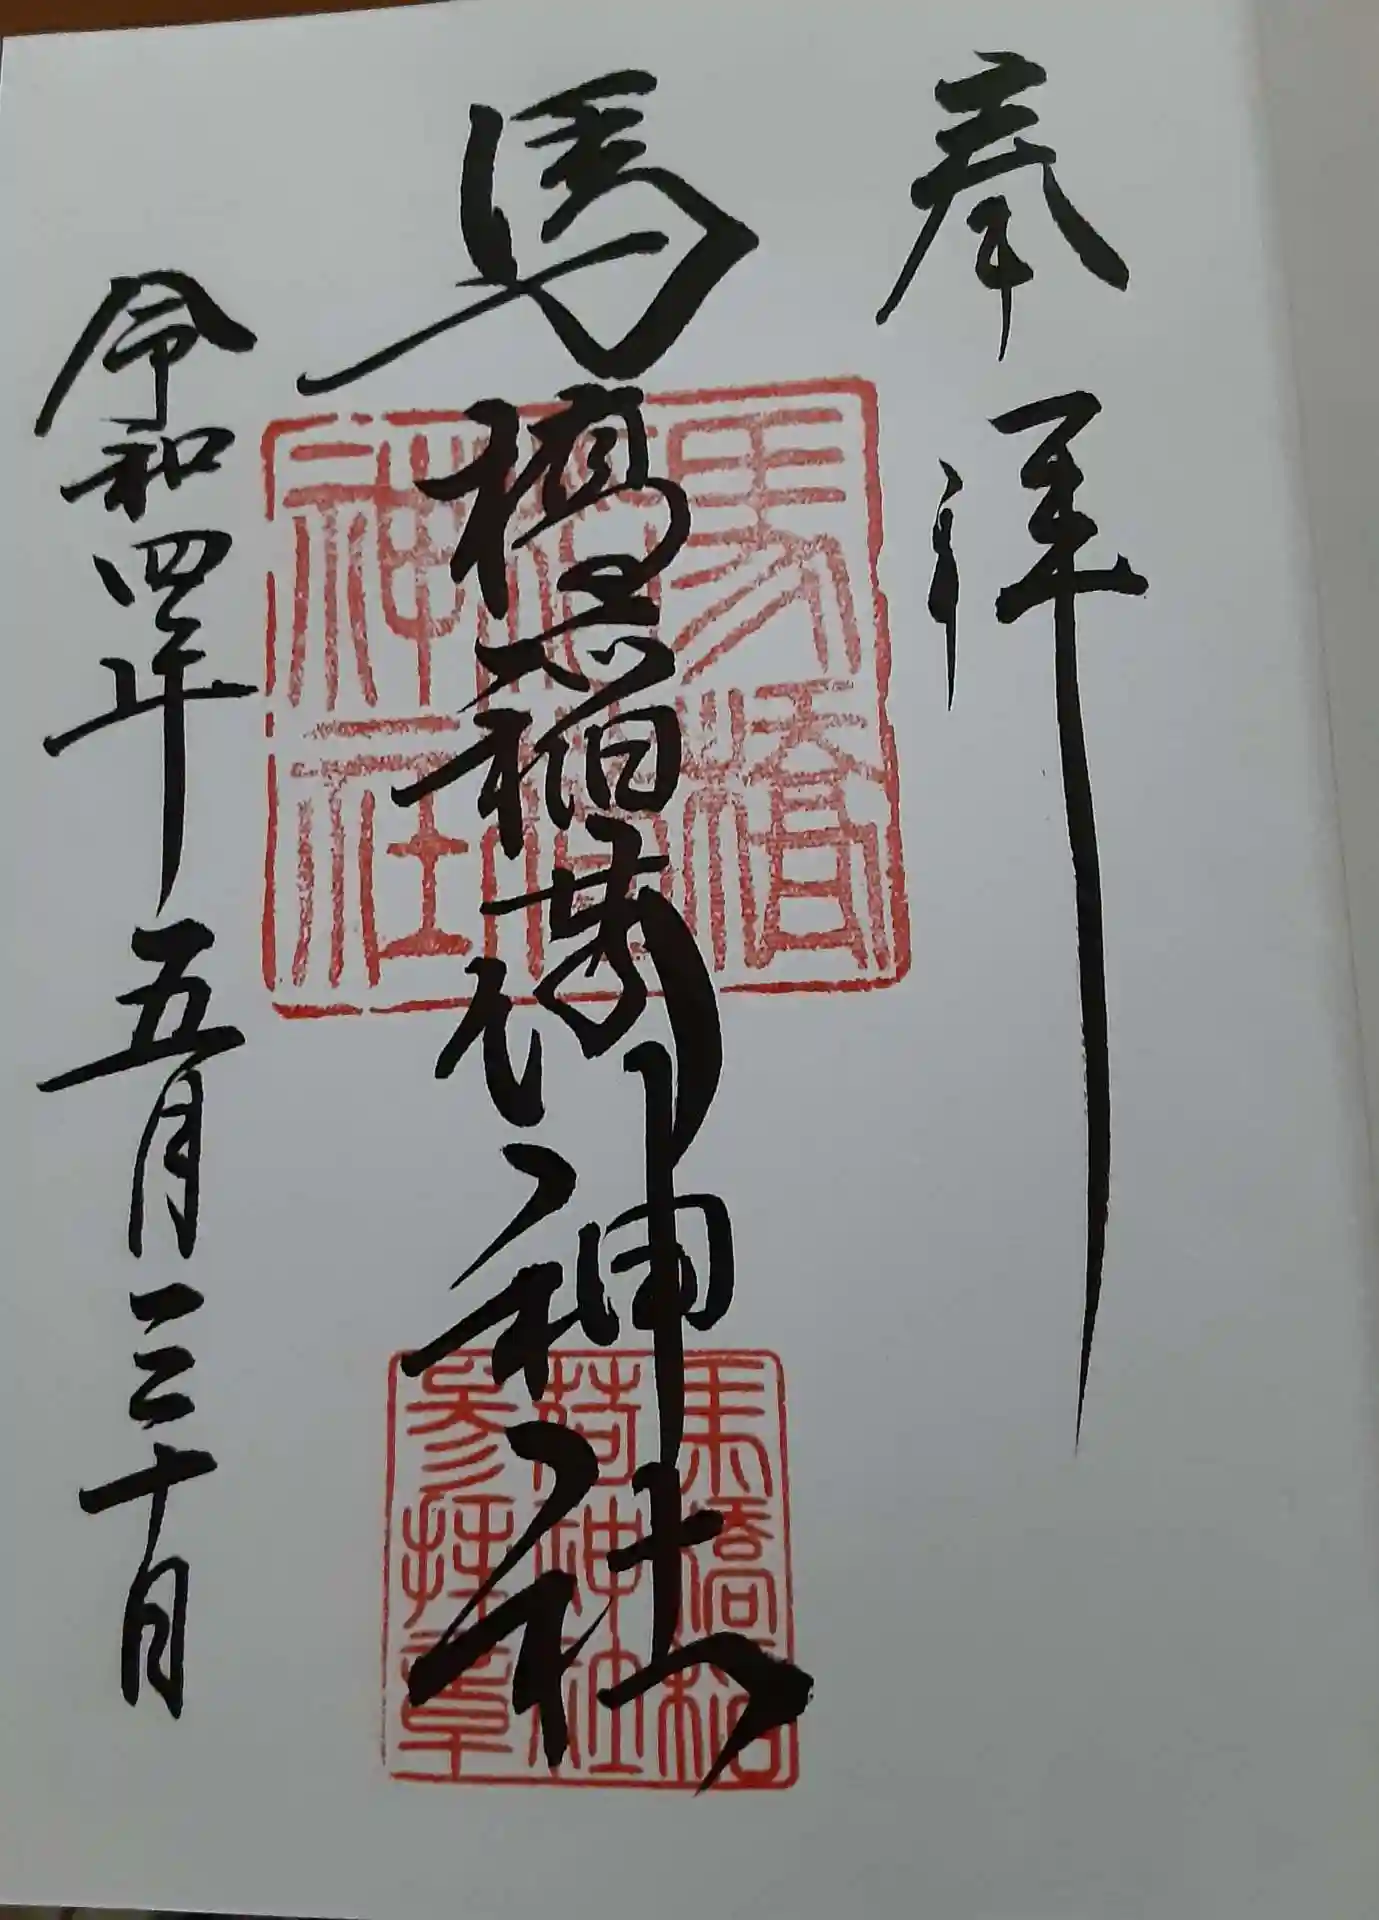 奉拝
馬橋稲荷神社
令和四年五月三十日
馬橋稲荷神社
馬橋稲荷神社参拝章